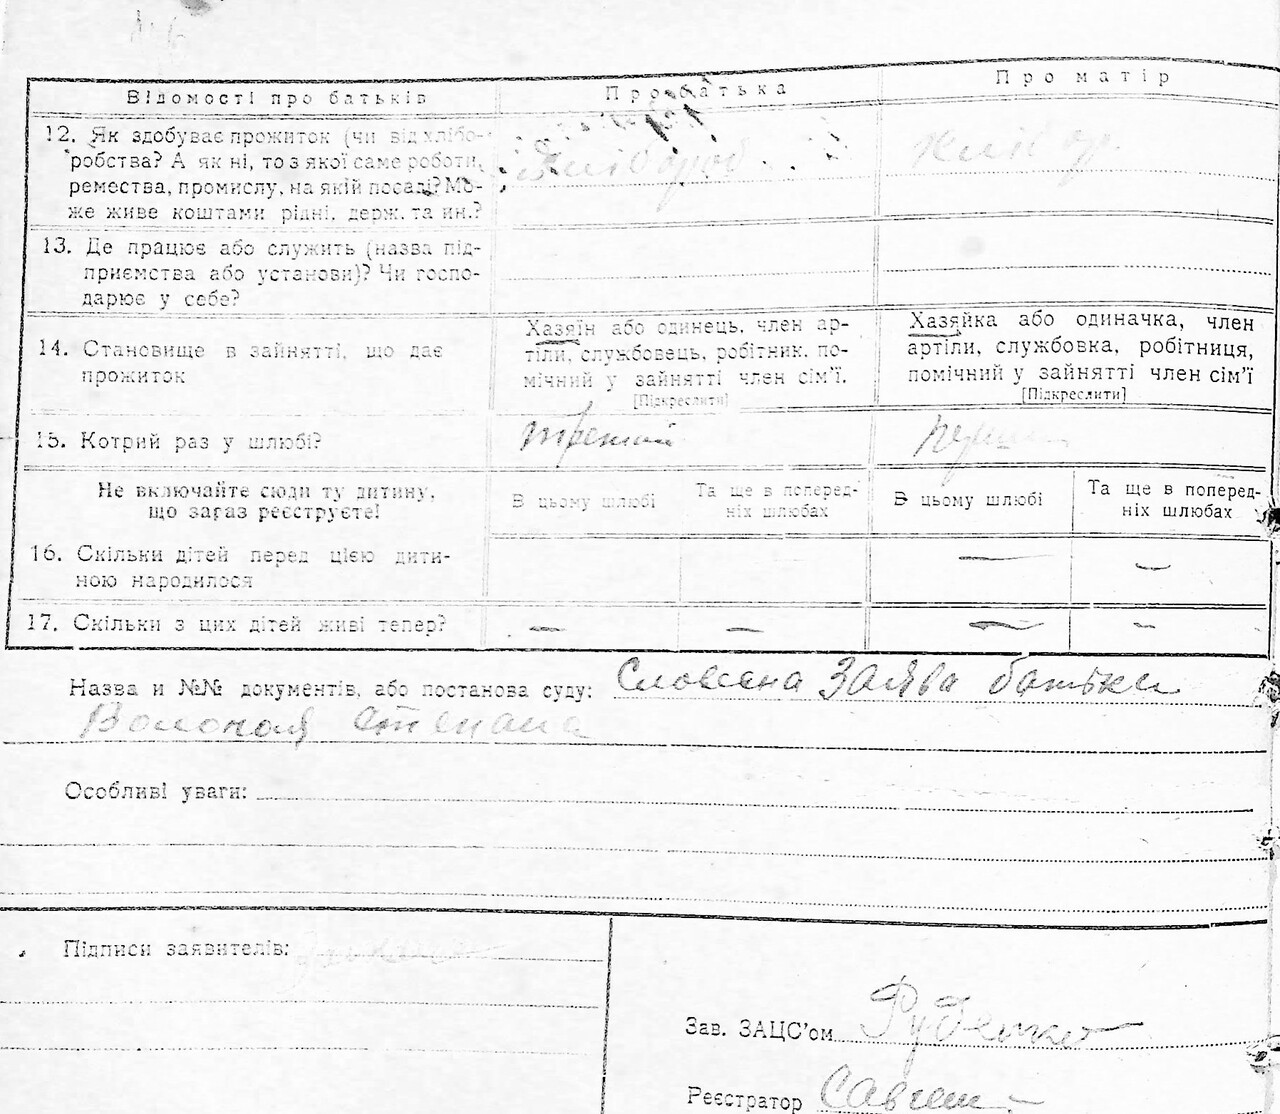 Відомості про батьків
Про батька
Про матір
12. Як здобуває прожиток (чи від хлібо-
робства? А як ні, то з якої саме роботи,
ремества, промислу, на якій посаді? Мо-
же живе коштами рідні, держ. та ин.?
Хлібороб
13. Це працює або служить (назва під-
приємства або установи)? Чи госпо-
дарює у себе?
14. Становище в зайнятті, що дає
прожиток
Хазяїн або одинець, член ар-
тіли, службовець, робітник, по-
мічний у зайнятті член сім'ї.
[Підкреслити]
Хазяйка або одиначка, член
артіли, службовка, робітниця,
помічний у зайнятті член сім'ї
[Підкреслити]
15. Котрий раз у шлюбі?
Не включайте сюди ту дитину,
що зараз реєструєте!
В цьому шлюбі
Та ще в поперед-
ніх шлюбах
В цьому шлюбі
Та ще в поперед-
ніх шлюбах
16. Скільки дітей перед цією дити-
ною народилося
— —
17. Скільки з цих дітей живі тепер?
— — — —
Назва и №№ документів, або постанова суду: Словесна заява батька
Степана
Особливі уваги:
Підписи заявителів:
Зав. ЗАЦС'ом Руденко
Реєстратор